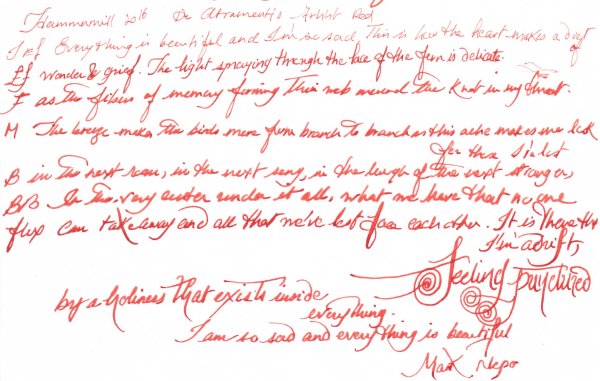 Hammermill 20lb De Atramentis Artist Red
Ref Everything is beautiful and I'm so sad. This is how the heart makes a duet of
EF wonder & grief. The light spraying through the lace of the fern is delicate
F as the fibers of memory forming their web around the knot in my throat.
M The breeze makes the birds move from branch to branch as this ache makes me look
for those I've lost
B in the next room, in the next song, in the laugh of the next stranger
BB In the very center under it all, what we have that no one
flex can take away and all that we've lost face each other. It is there that
I'm adrift,
feeling punctured
by a holiness that exists inside
everything.
I am so sad and everything is beautiful
Mark Nepo